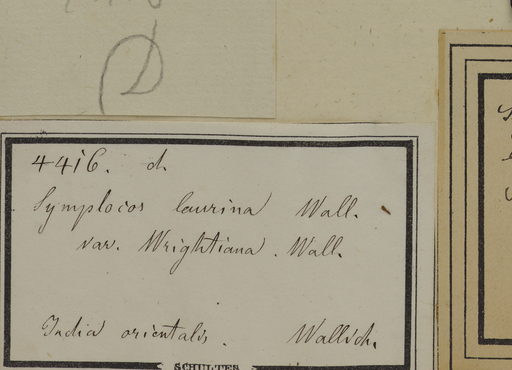 4416. d.
Symplocos laurina Wall.
var. Wrightiana. Wall.
India orientalis. Wallich.
SCHULTES